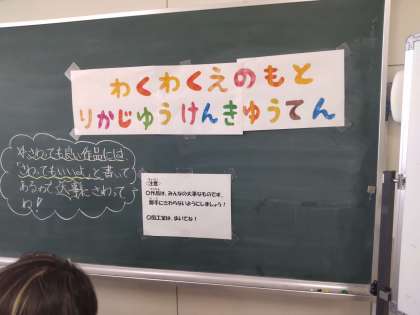 わくわくえのもと
りかじゆうけんきゆうてん
※さわっても良い作品には
「さわってもいいよ」と書いて
あるので大事にさわって
ね!
<注意>
〇作品は、みんなの大事なものです。
勝手にさわらないようにしましょう!
〇図工室は、歩いてね!